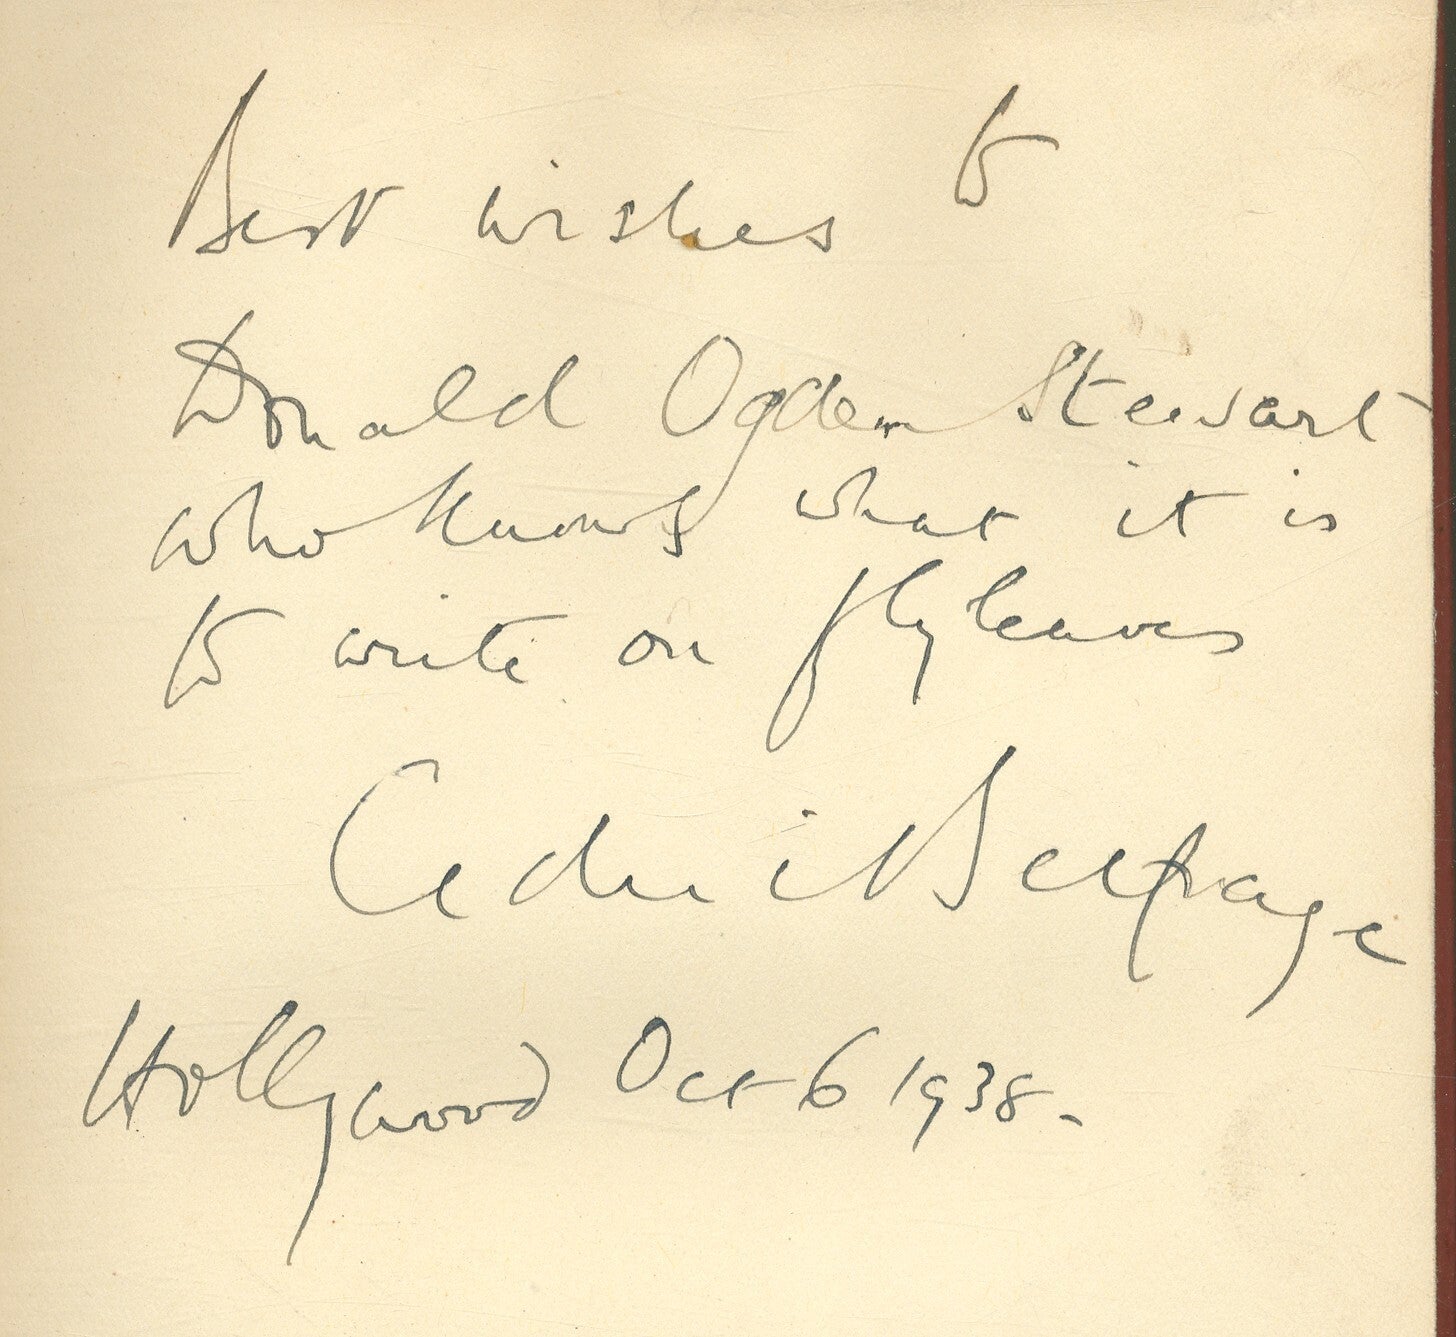 Best wishes to
Donald Ogden Stewart
who knows what it is
to write on flyleaves
Cedric Belfrage
Hollywood Oct 6 1938.